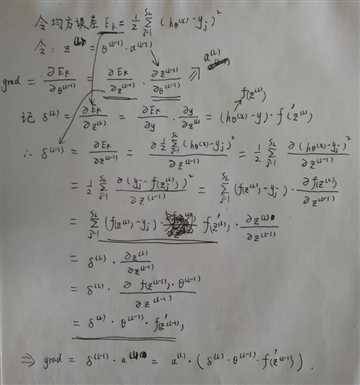 令均方误差 E_k = 1/2 Σ_{j=1}^{S_L} (h_θ(x) - y_j)²
令: z^(l) = θ^(l-1) · a^(l-1)
grad = ∂E_k/∂θ^(l-1) = ∂E_k/∂z^(l-1) · ∂z^(l-1)/∂θ^(l-1) ⇒ a^(l)
记 δ^(l) = ∂E_k/∂z^(l) = ∂E_k/∂y · ∂y/∂z^(l) = (h_θ(x) - y) · f'(z^(l)) f(z^(l))
∴ δ^(l-1) = ∂E_k/∂z^(l-1) = ∂ 1/2 Σ_{j=1}^{S_L} (h_θ(x) - y_j)² / ∂z^(l-1) = 1/2 Σ_{j=1}^{S_L} ∂(h_θ(x) - y_j)²/∂z^(l-1)
= 1/2 Σ_{j=1}^{S_L} ∂(y_j - f(z^(l)))²/∂z^(l-1) = Σ_{j=1}^{S_L} (f(z^(l)) - y_j) · ∂f(z^(l))/∂z^(l-1)
= Σ_{j=1}^{S_L} (f(z^(l)) - y_j) · f'(z^(l)) · ∂z^(l)/∂z^(l-1)
= δ^(l) · ∂z^(l)/∂z^(l-1)
= δ^(l) · ∂ f(z^(l-1)) · θ^(l-1) / ∂z^(l-1)
= δ^(l) · θ^(l-1) · f'(z^(l-1))
⇒ grad = δ^(l-1) · a^(l) = a^(l) · (δ^(l) · θ^(l-1) · f'(z^(l-1))).